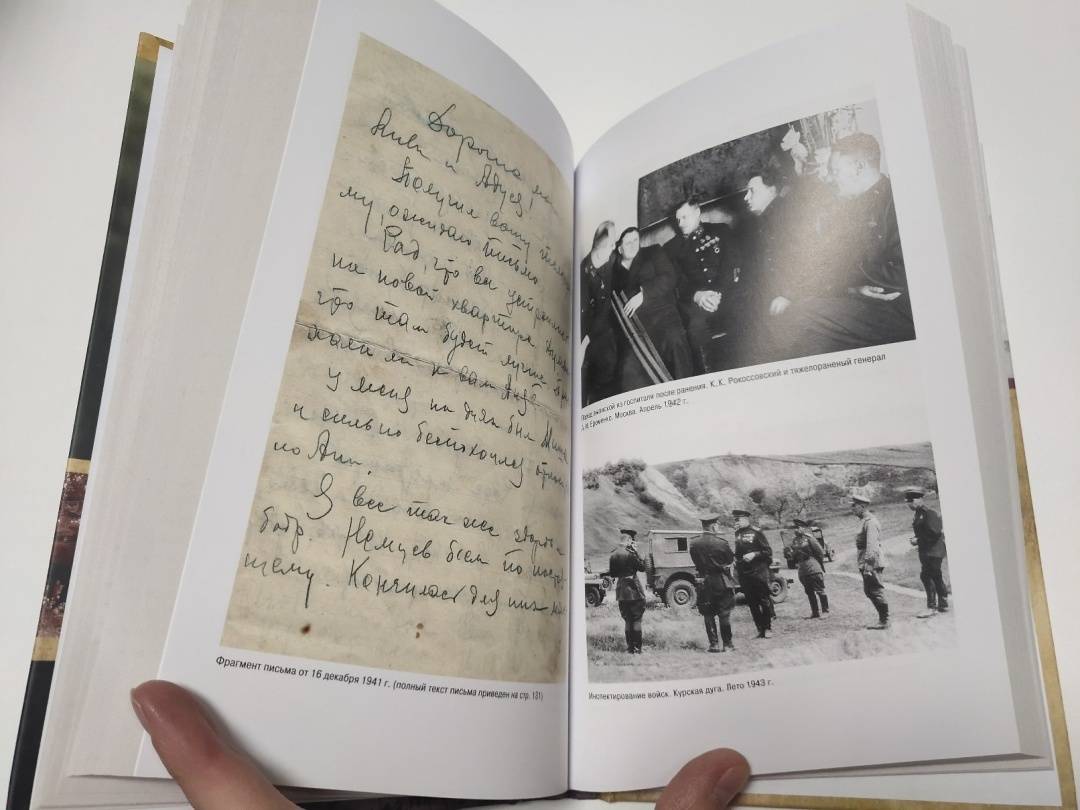 Дорогие мои
Люлю и Адуся!
Получил вашу телеграм
му, ожидаю письмо.
Рад, что вы устроились
на новой квартире.
что там будет лучше.
ли к вам
У меня на днях был Миша
и сильно беспокоился
по Ани.
Я все так же здоров и
бодр. Немцев бьем по насто
щему. Кончилась для них
Фрагмент письма от 16 декабря 1941 г. (полный текст письма приведен на стр. 131)
из госпиталя после ранения. К.К. Рокоссовский и тяжелораненый генерал
Еременко. Москва. Апрель 1942 г.
Инспектирование войск. Курская дуга. Лето 1943 г.